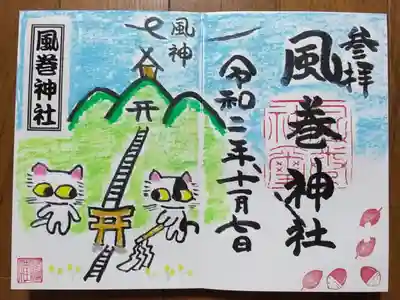 参拝
風巻神社
令和二年、十一月七日
風神
風巻神社